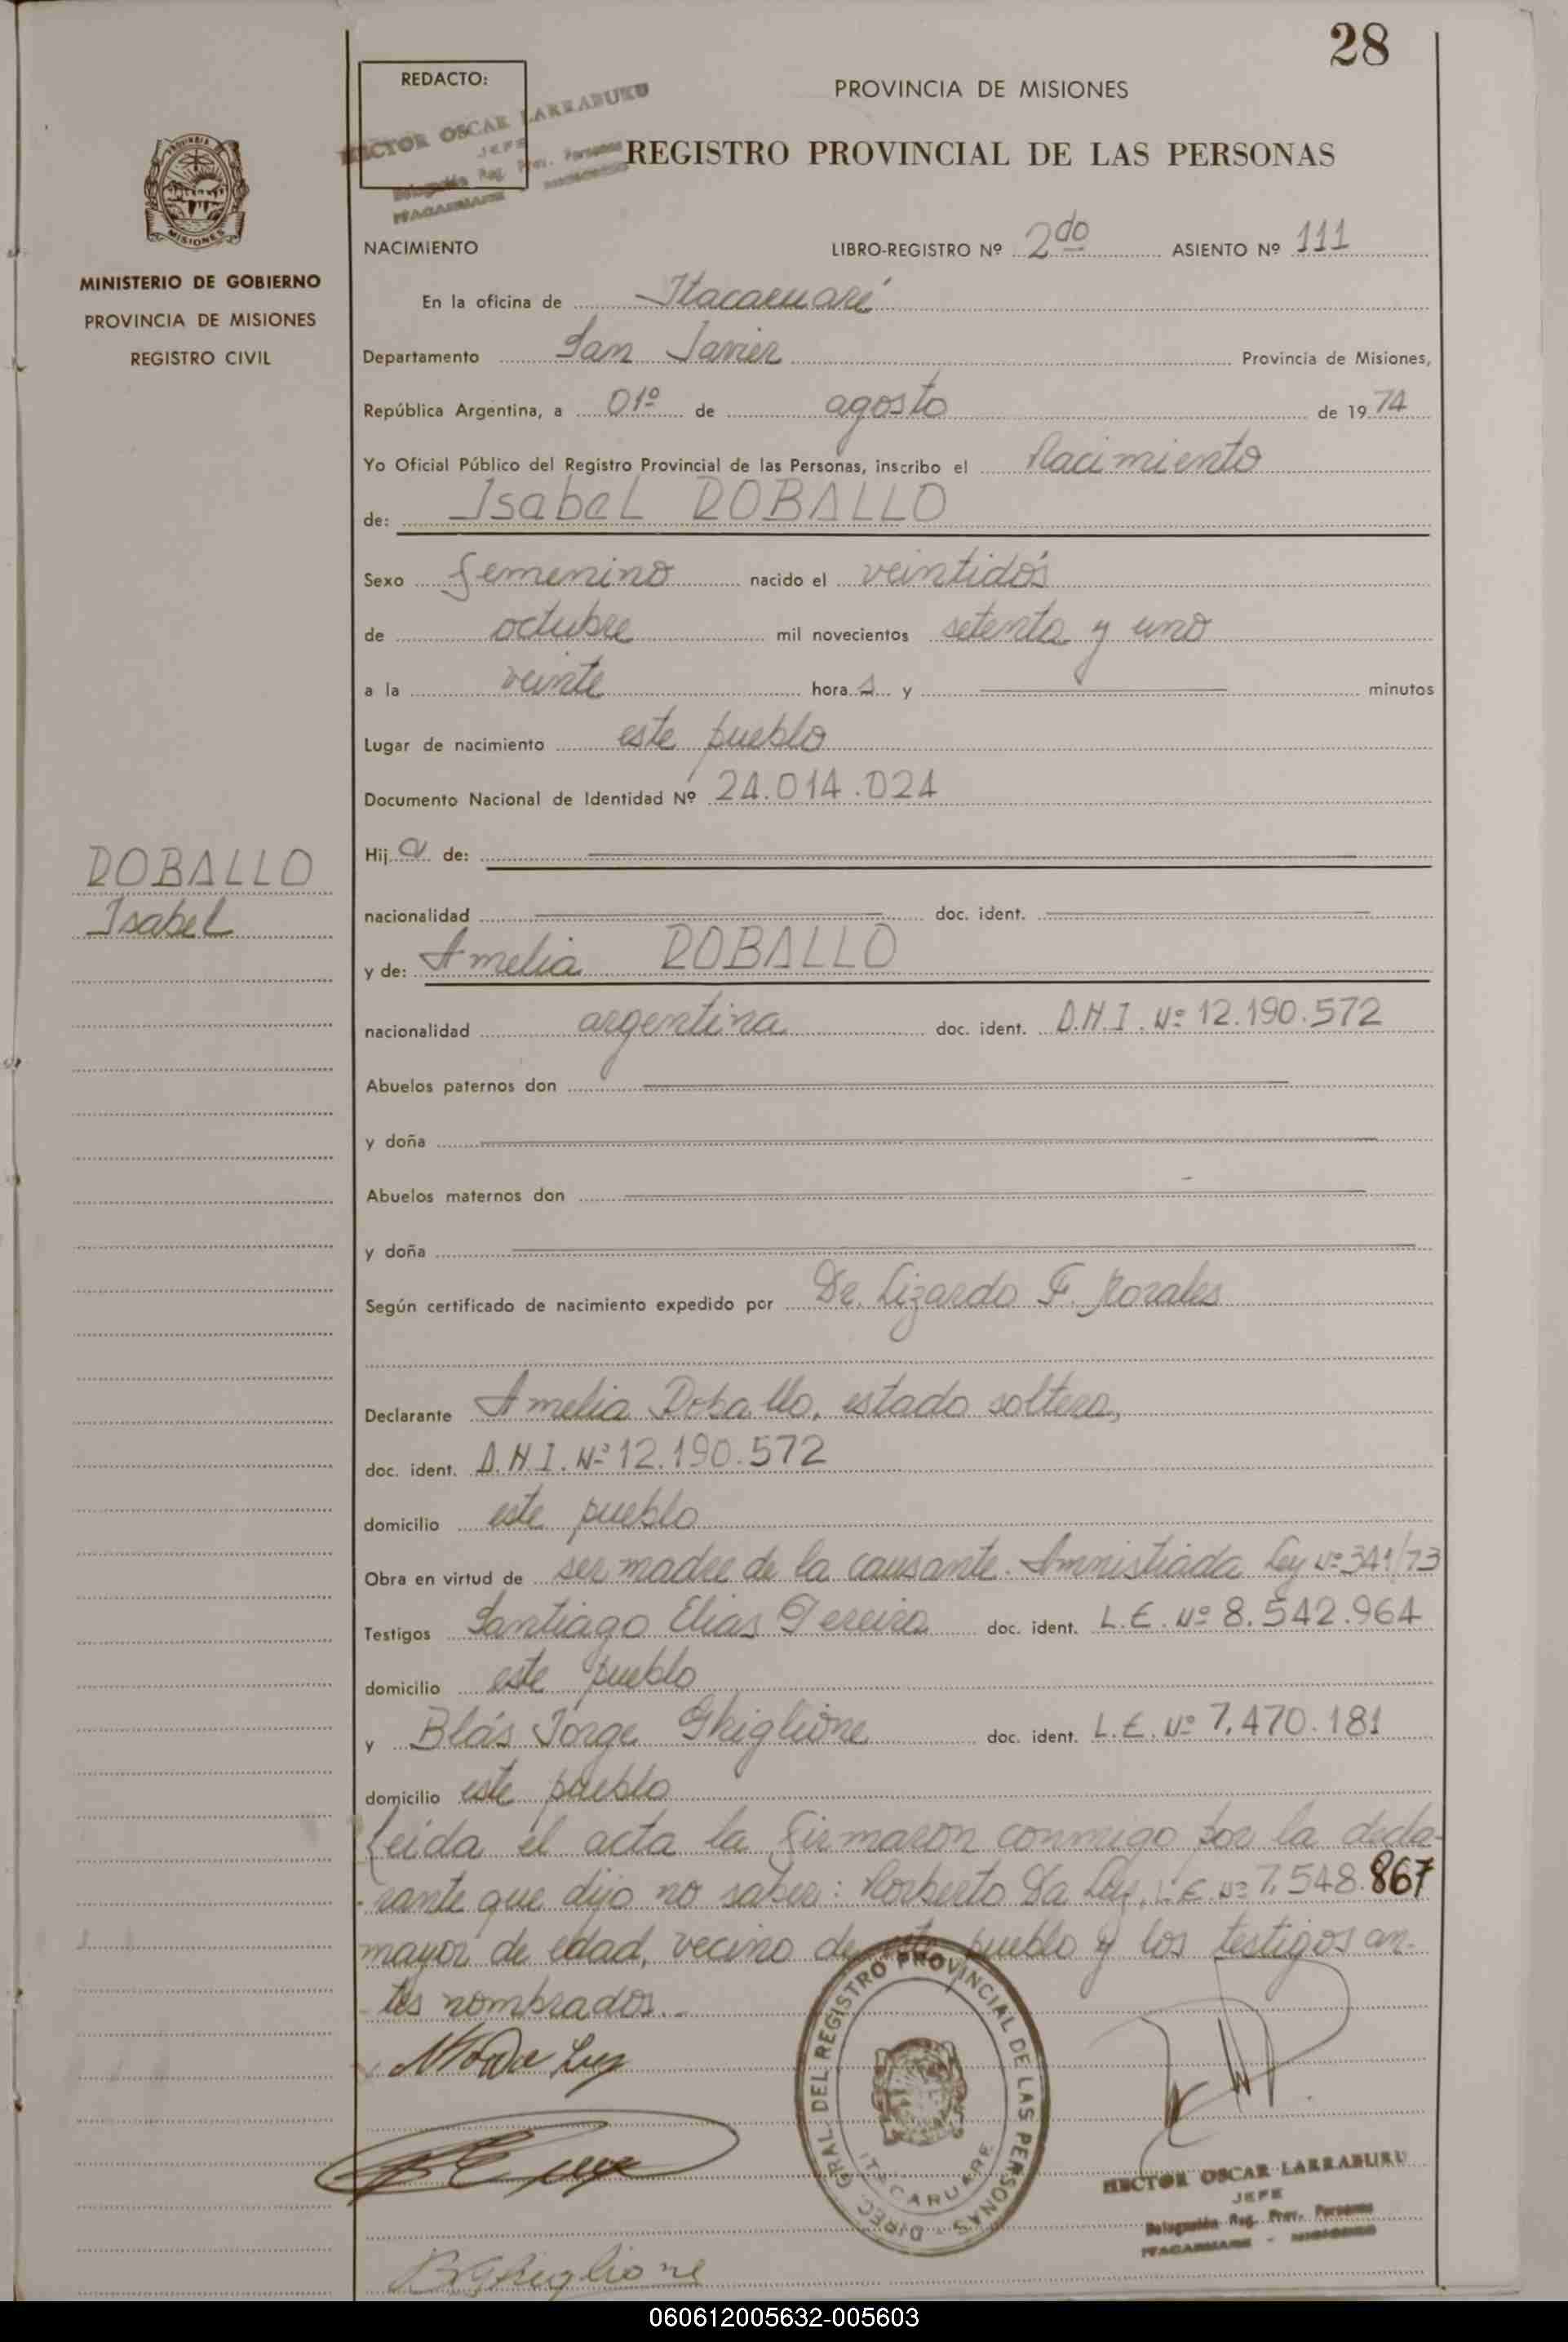 28
REDACTO:
HECTOR OSCAR LARRABURU
JEFE
Delegación Reg. Prov. Personas
ITACARUARE - MISIONES
PROVINCIA DE MISIONES
REGISTRO PROVINCIAL DE LAS PERSONAS
MISIONES
MINISTERIO DE GOBIERNO
PROVINCIA DE MISIONES
REGISTRO CIVIL
NACIMIENTO LIBRO-REGISTRO Nº 2do ASIENTO Nº 111
En la oficina de Itacaruaré
Departamento San Javier Provincia de Misiones,
República Argentina, a 01º de agosto de 1974
Yo Oficial Público del Registro Provincial de las Personas, inscribo el Nacimiento
de: Isabel ROBALLO
Sexo femenino nacido el veintidós
de octubre mil novecientos setenta y uno
a la veinte hora s y minutos
Lugar de nacimiento este pueblo
Documento Nacional de Identidad Nº 24.014.024
ROBALLO
Isabel
Hija de:
nacionalidad doc. ident.
y de: Amelia ROBALLO
nacionalidad argentina doc. ident. D.N.I. Nº 12.190.572
Abuelos paternos don
y doña
Abuelos maternos don
y doña
Según certificado de nacimiento expedido por Dr. Lizardo F. Morales
Declarante Amelia Roballo, estado soltera,
doc. ident. D.N.I. Nº 12.190.572
domicilio este pueblo
Obra en virtud de ser madre de la causante. Amnistiada Ley Nº 341/73
Testigos Santiago Elias Pereira doc. ident. L.E. Nº 8.542.964
domicilio este pueblo
y Blás Jorge Ghiglione doc. ident. L.E. Nº 7.470.181
domicilio este pueblo
Leida el acta la firmaron conmigo por la decla-
rante que dijo no saber: Norberto Da Luz, L.E. Nº 7.548.867
mayor de edad, vecino de este pueblo y los testigos an-
tes nombrados.-
N Da Luz
DIREC. GRAL. DEL REGISTRO PROVINCIAL DE LAS PERSONAS
ITACARUARE
HECTOR OSCAR LARRABURU
JEFE
Delegación Reg. Prov. Personas
ITACARUARE - MISIONES
B Ghiglione
060612005632-005603